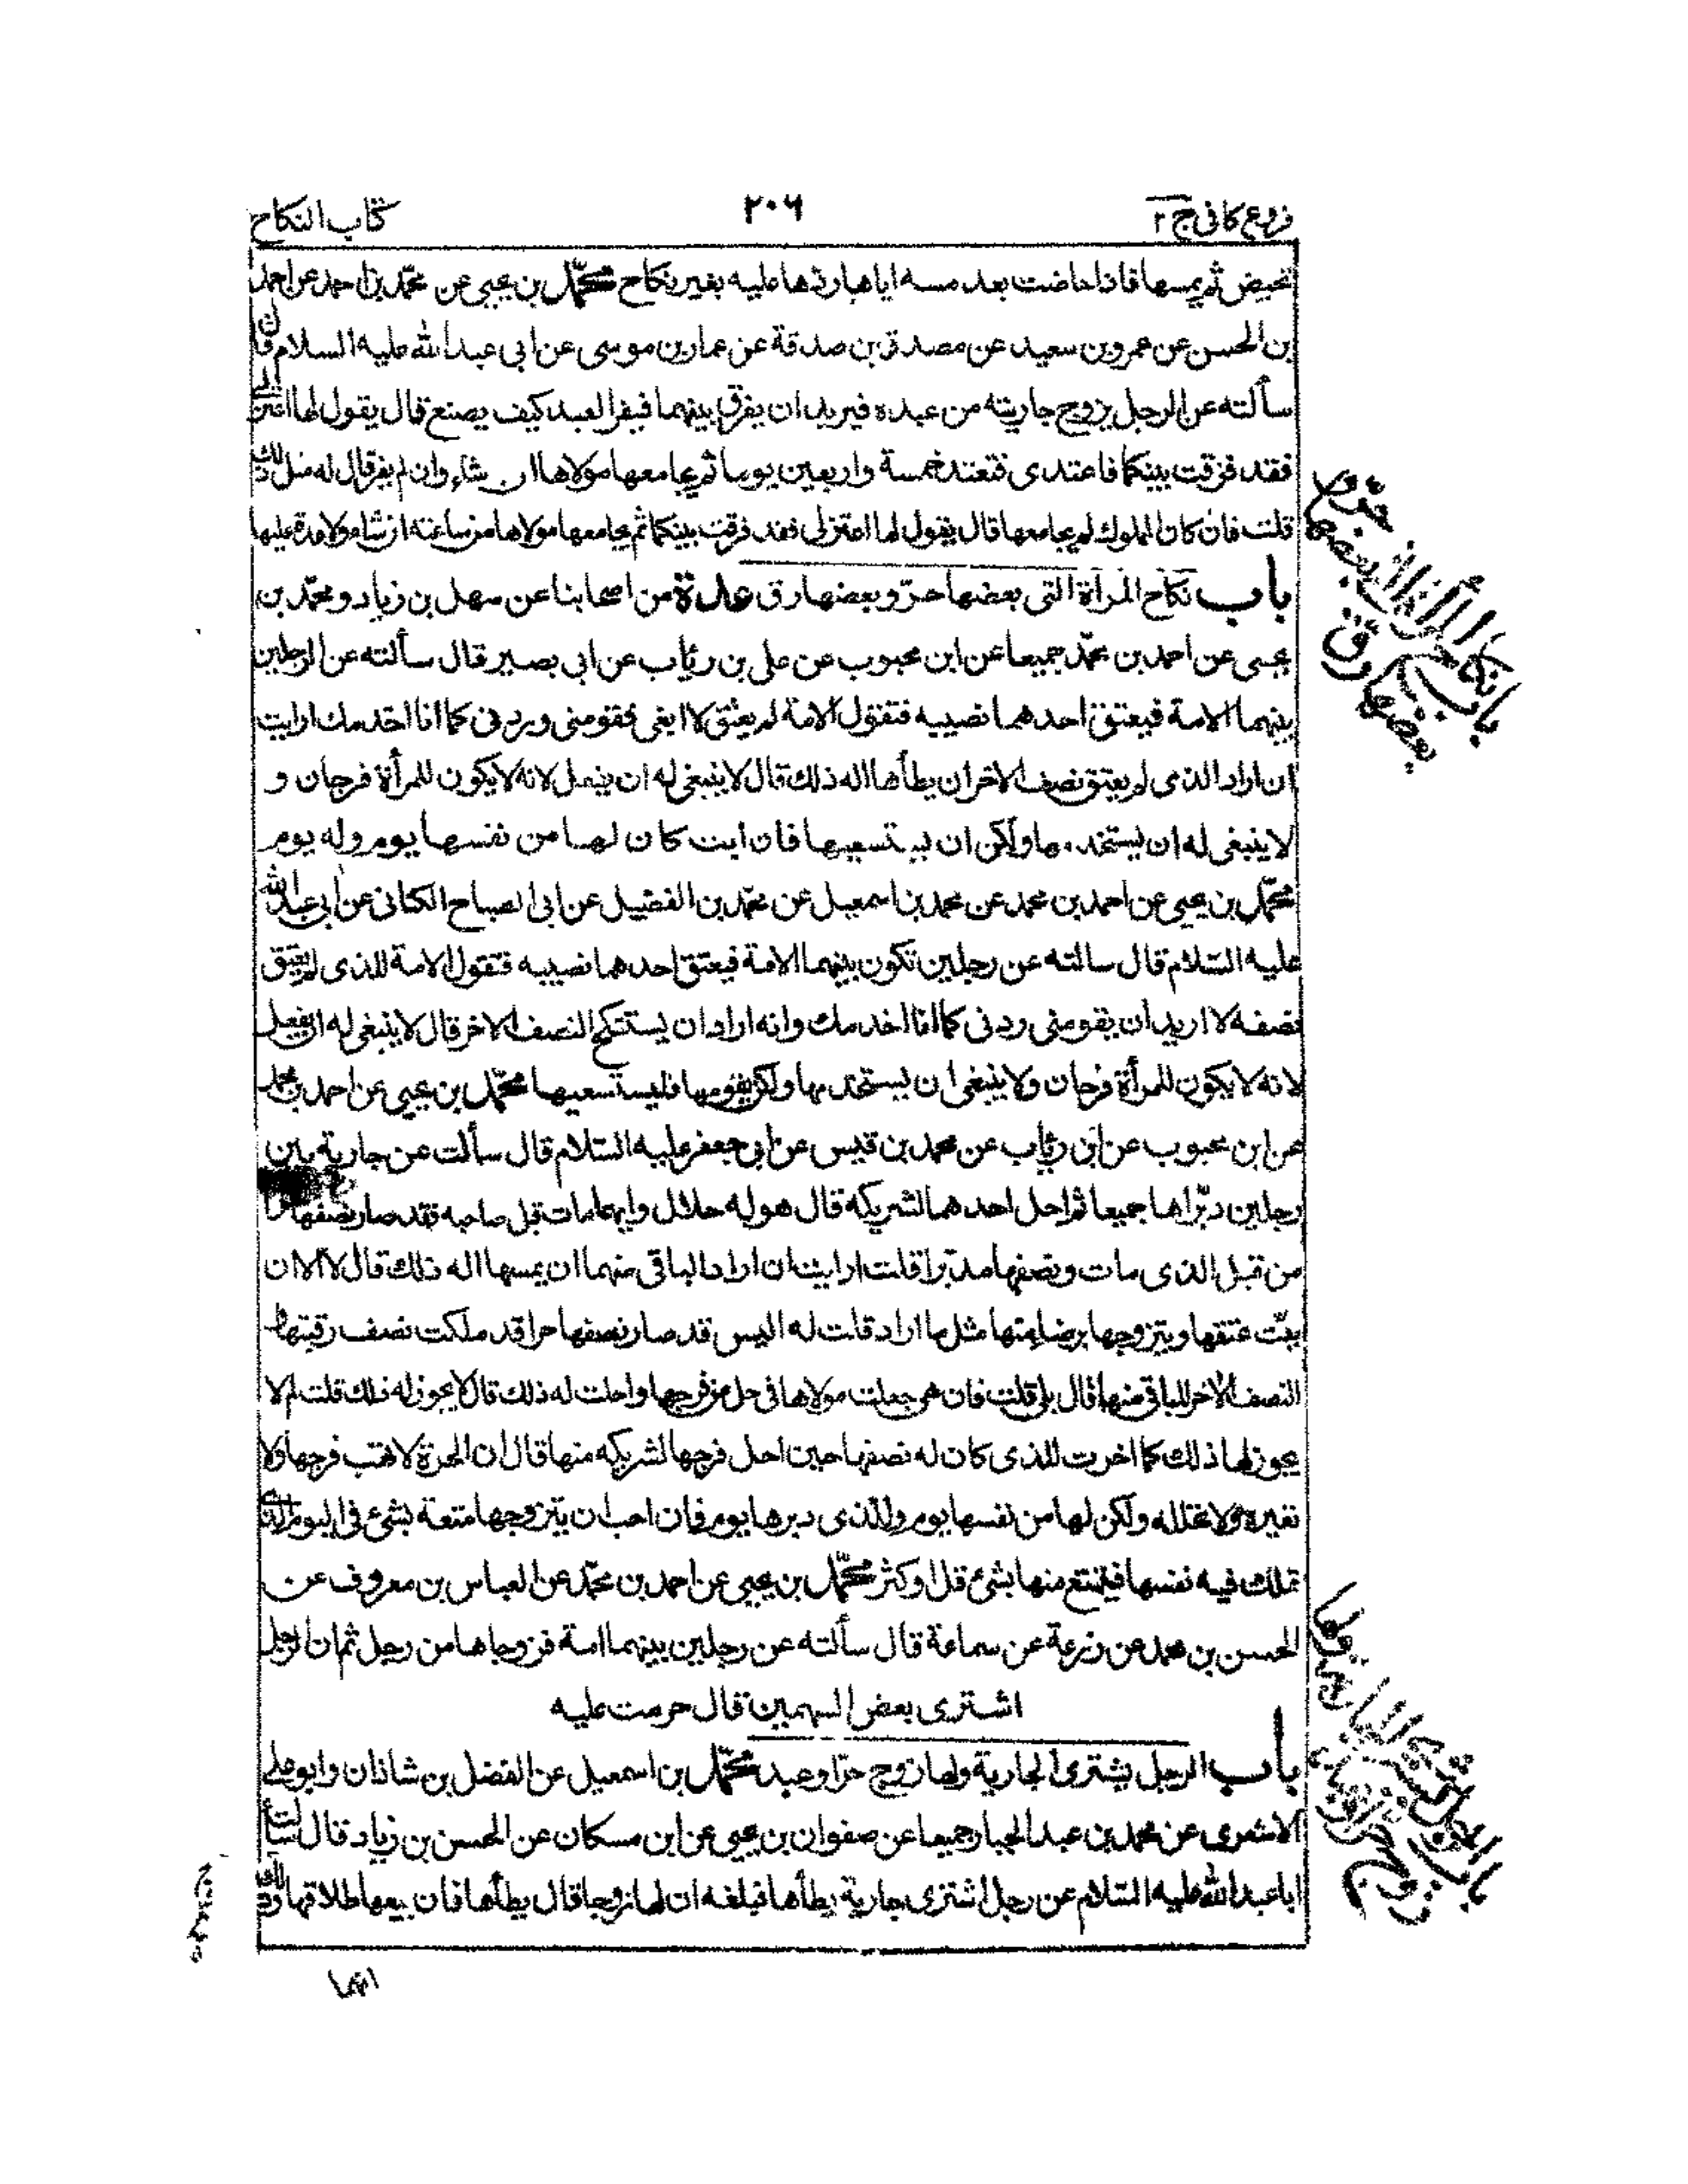 فروع كافى ج ٢
٢٠٦
كتاب النكاح
تحيض ثم يمسها فاذا حاضت بعد مسه اياها ردها عليه بغير نكاح محمّد بن يحيى عن محمّد بن احمد عن احمد
بن الحسن عن عمرو بن سعيد عن مصدق بن صدقة عن عمار بن موسى عن ابى عبد الله عليه السلام قال
سألته عن الرجل يزوج جاريته من عبده فيريد ان يفرق بينهما فيفر العبد كيف يصنع قال يقول لها اعتزلى
فقد فرقت بينكما فاعتدى فتعتد خمسة واربعين يوما ثم يجامعها مولاها ان شاء وان لم يفر قال له مثل ذلك
قلت فان كان المملوك لم يجامعها قال يقول لها اعتزلى فقد فرقت بينكما ثم يجامعها مولاها من ساعته ان شاء ولا عدة عليها
باب نكاح المرأة التى بعضها حرّ وبعضها رق عدة من اصحابنا عن سهل بن زياد ومحمّد بن
يحيى عن احمد بن محمّد جميعا عن ابن محبوب عن على بن رئاب عن ابى بصير قال سألته عن الرجلين
بينهما الامة فيعتق احدهما نصيبه فتقول الامة لم يعتق لا ابغى فقومنى وردنى كما انا اخدمك ارايت
ان اراد الذى لم يعتق نصف الاخر ان يطأها اله ذلك قال لا ينبغى له ان يفعل لانه لا يكون للمرأة فرجان و
لا ينبغى له ان يستخدمها ولكن ان يستسعيها فان ابت كان لها من نفسها يوم وله يوم
محمّد بن يحيى عن احمد بن محمد عن محمد بن اسمعيل عن محمّد بن الفضيل عن ابى الصباح الكنانى عن ابى عبد الله
عليه السّلام قال سالته عن رجلين تكون بينهما الامة فيعتق احدهما نصيبه فتقول الامة للذى لم يعتق
نصفه لا اريد ان يقومنى ردنى كما انا اخدمك وانه اراد ان يستنكح النصف الاخر قال لا ينبغى له ان يفعل
لانه لا يكون للمرأة فرجان ولا ينبغى ان يستخدمها ولكن يقومها فليستسعيها محمّد بن يحيى عن احمد بن محمد
عن ابن محبوب عن ابن رئاب عن محمد بن قيس عن ابى جعفر عليه السّلام قال سألت عن جارية بين
رجلين دبّراها جميعا ثم احل احدهما لشريكه قال هو له حلال وايهما مات قبل صاحبه فقد صار نصفها حرا
من قبل الذى مات ونصفها مدبّرا قلت ارايت ان اراد الباقى منهما ان يمسها اله ذلك قال لا الا ان
يبتّ عتقها ويتزوجها برضا منها مثل ما اراد قلت له اليس قد صار نصفها حرا قد ملكت نصف رقبتها و
النصف الاخر للباقى منهما قال بلى قلت فان هى جعلت مولاها فى حل من فرجها واحلت له ذلك قال لا يجوز له ذلك قلت لم لا
يجوز لها ذلك كما اجزت للذى كان له نصفها حين احل فرجها لشريكه منها قال ان الحرة لا تهب فرجها ولا
تعيره ولا تحلله ولكن لها من نفسها يوم وللذى دبرها يوم فان احب ان يتزوجها متعة بشئ فى اليوم الذى
تملك فيه نفسها فيتمتع منها بشئ قل او كثر محمّد بن يحيى عن احمد بن محمّد عن العباس بن معروف عن
الحسن بن محمد عن زرعة عن سماعة قال سألته عن رجلين بينهما امة فزوجاها من رجل ثم ان الرجل
اشترى بعض السهمين قال حرمت عليه
باب الرجل يشترى الجارية ولها زوج حرّ او عبد محمّد بن اسمعيل عن الفضل بن شاذان وابو على
الاشعرى عن محمد بن عبد الجبار جميعا عن صفوان بن يحيى عن ابن مسكان عن الحسن بن زياد قال سألت
ابا عبد الله عليه السّلام عن رجل اشترى جارية يطأها فبلغه ان لها زوجا قال يطأها فان بيعها طلاقها وذلك
انهما